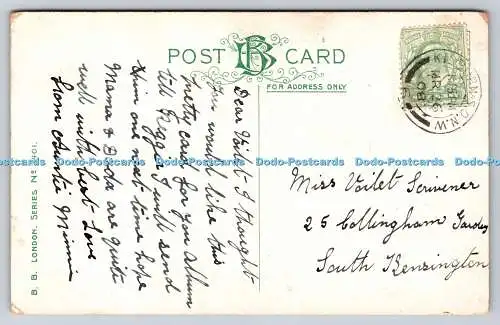 POST CARD
FOR ADDRESS ONLY
Dear Voilet I thought
you would like this
pretty card for you Album
tell Reggie I will send
him one next time hope
Mama & Dada are quite
well with best Love
from Auntie Minnie
Miss Voilet Scrivener
25 Collingham Gardens
South Kensington
B. B. LONDON. SERIES No
Dodo-Postcards Dodo-Postcards Dodo-Postcards Dodo-Postcards Dodo-Postcards